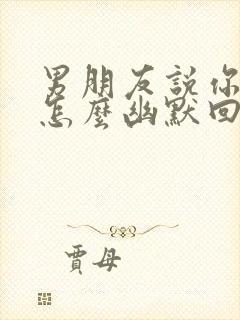 男朋友説你
怎麼幽默回
賈母